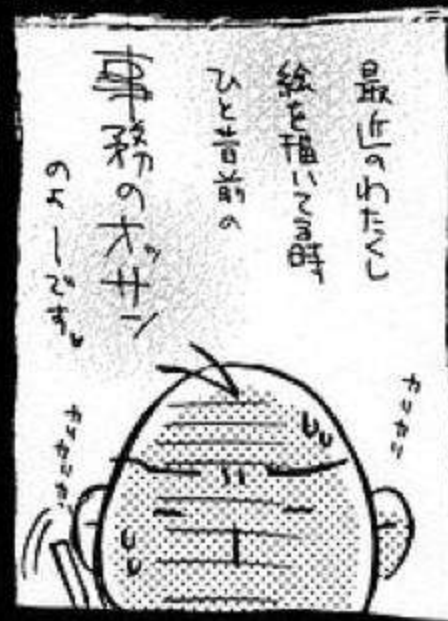 最近のわたくし
絵を描いてる時
ひと昔前の
事務のオッサン
のよーです。
カリカリ
カリカリカリ